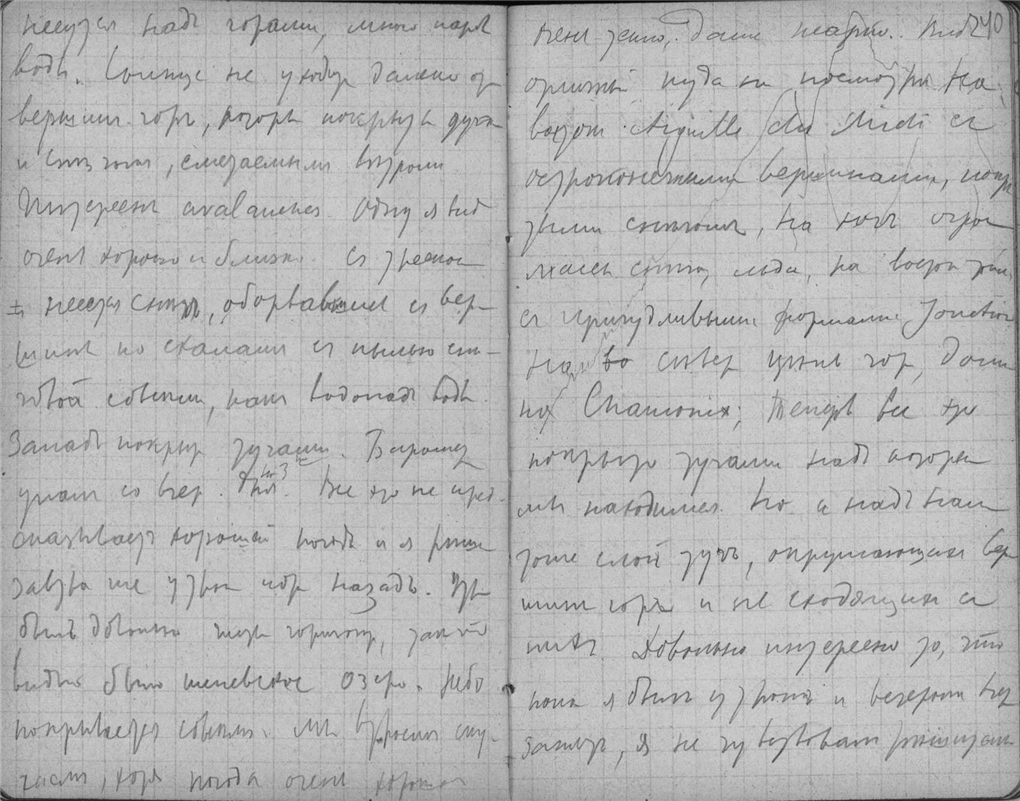 несутся надъ горами, много паровъ
воды. Солнце не уходит далеко от
вершин горъ, которые покрыты
и снегом, сметаемым ветрами
Интересен avalanches. Одну я вид
очень хорошо и близко. Съ треском
несутся снегъ, оборвавшися съ вер-
шины по скаламъ съ пылью сне-
говой совсемъ, какъ водопадъ воды.
Западъ покрыт тучами. Барометр
упалъ со вчер. Все это не пред-
сказываетъ хорошей погоды и я решил
завтра же утром идти назадъ.
былъ довольно горизонт, так что
видно было женевское озеро. Небо
покрывается совсемъ. Мы
хотя погода очень хороша
темно, даже Вид 240
куда ни посмотри. На
восток Aiguille du Midi съ
остроконечными вершинами, покры
тыми снегомъ, на югъ огро
снега, льда, на восток
съ причудливыми формами Jonction
На север цепь гор, долина
Chamonix; теперь все это
покрыто тучами надъ которы
ми находимся. Но и надъ нами
тоже слой тучъ, окружающихъ вер
шины горъ и не сходящихъ съ
нихъ. Довольно интересно то, что
пока я былъ утромъ и вечером
я не чувствовалъ